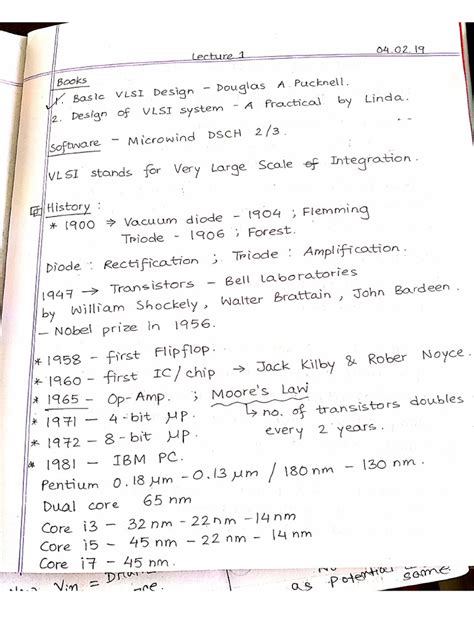 Lecture 1
04.02.19
Books
1. Basic VLSI Design - Douglas A. Pucknell.
2. Design of VLSI system - A Practical by Linda.
Software - Microwind DSCH 2/3.
VLSI stands for Very Large Scale of Integration.
History :
* 1900 → Vacuum diode - 1904 ; Flemming
Triode - 1906 ; Forest.
Diode : Rectification ; Triode : Amplification.
1947 → Transistors - Bell laboratories
by William Shockely, Walter Brattain, John Bardeen.
- Nobel prize in 1956.
* 1958 - first Flipflop.
* 1960 - first IC/chip → Jack Kilby & Rober Noyce.
* 1965 - Op-Amp. ; Moore's Law
↳ no. of transistors doubles
* 1971 - 4-bit μp.
every 2 years.
* 1972 - 8-bit μp.
* 1981 - IBM PC.
Pentium 0.18 μm - 0.13 μm / 180 nm - 130 nm.
Dual core 65 nm
Core i3 - 32 nm - 22 nm - 14 nm
Core i5 - 45 nm - 22 nm - 14 nm
Core i7 - 45 nm.
Vin =
as potential same